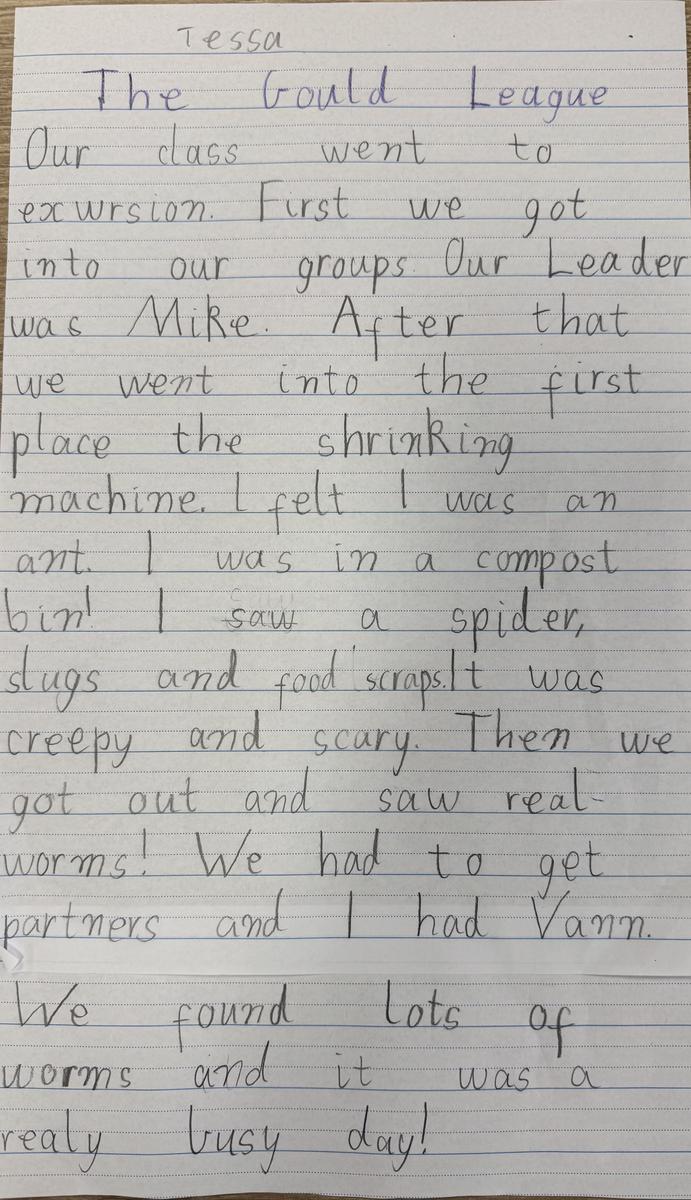 Tessa
The Gould League
Our class went to
excursion. First we got
into our groups. Our Leader
was Mike. After that
we went into the first
place the shrinking
machine. I felt I was an
ant. I was in a compost
bin! I saw a spider,
slugs and food scraps. It was
creepy and scary. Then we
got out and saw real-
worms! We had to get
partners and I had Vann.
We found lots of
worms and it was a
realy busy day!